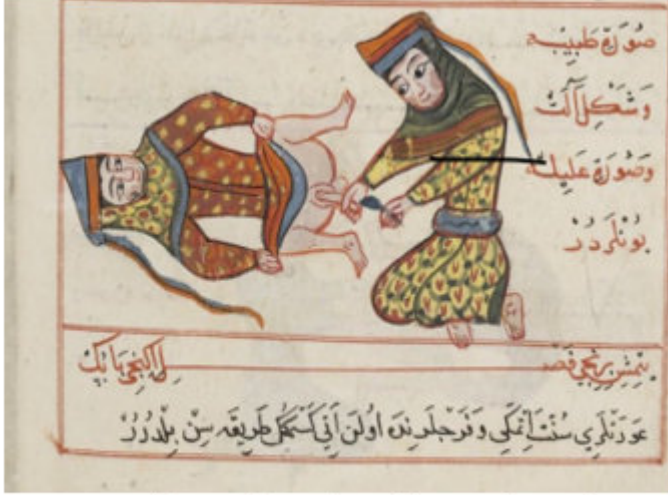 صُورَةِ طَبِيبَه
وَشَكْلِ آلَتْ
وَصُورَةِ عَلِيلَه
بُونْلَرْدُرْ
يتمش برنجی فصل ايكنجی بابڭ
عورتلری سنت اتمكی و فرجلرنده اولن اتی كسمكڭ طريقه سن بلدرر